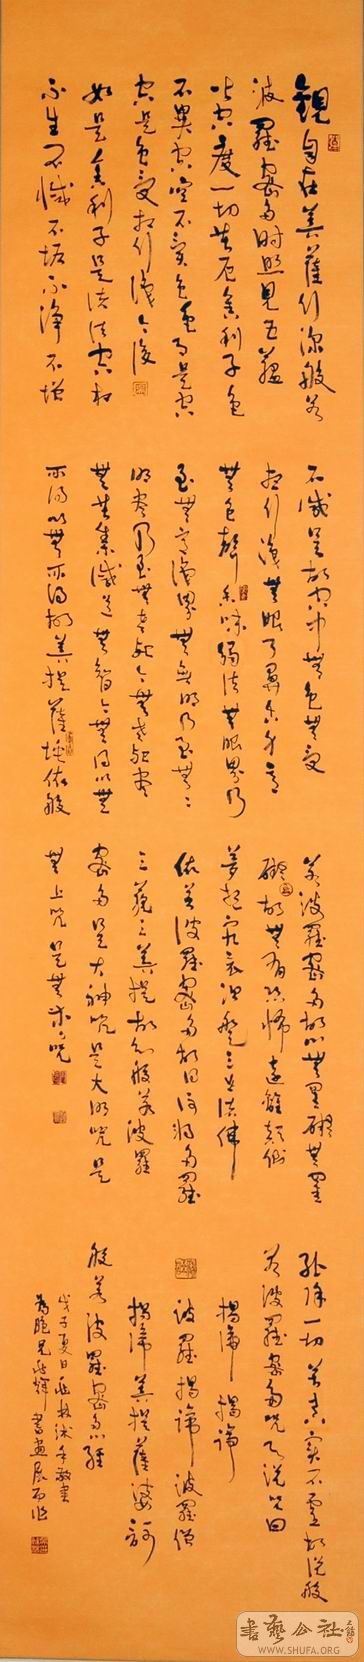 觀自在菩薩行深般若
波羅密多時照見五蘊
皆空度一切苦厄舍利子色
不異空空不異色色即是空
空是色受想行識亦復
如是舍利子是諸法空相
不生不滅不垢不淨不增
不減是故空中無色無受
想行識無眼耳鼻舌身意
無色聲香味觸法無眼界乃
至無意識界無無明乃至無
明盡乃至無老死亦無老死盡
無苦集滅道無智亦無得以無
所得以無所得故菩提薩埵依般
若波羅密多故心無罣礙無罣
礙故無有恐怖遠離顛倒
夢想究竟涅槃三世諸佛
依若波羅密多故得阿耨多羅
三藐三菩提故知般若波羅
密多是大神咒是大明咒是
無上咒是無等々咒
能除一切苦真實不虛故說般
若波羅密多咒即說咒曰
揭諦揭諦
波羅揭諦波羅僧
揭諦菩提薩婆訶
般若波羅密多心經
戊子夏日敬書
為兄書畫展而作
書藝公社
WWW.SHUFA.ORG